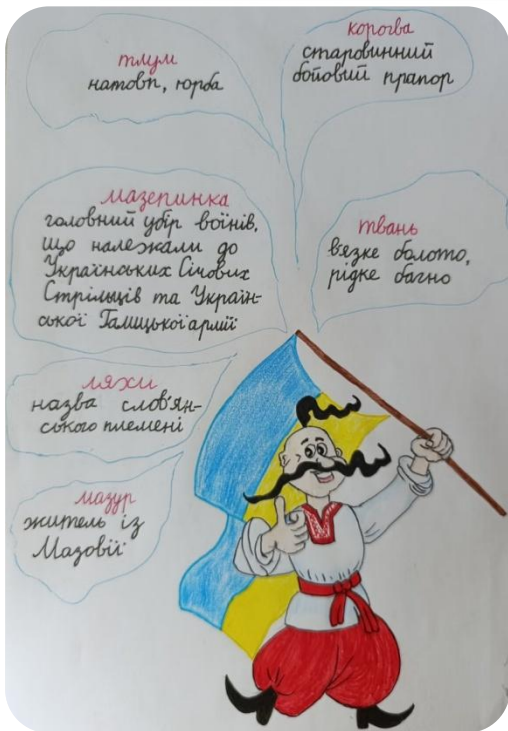 тлум
натовп, юрба
корогва
старовинний
бойовий прапор
мазепинка
головний убір воїнів,
що належали до
Українських Січових
Стрільців та Україн-
ської Галицької армії
твань
в'язке болото,
рідке багно
ляхи
назва слов'ян-
ського племені
мазур
житель із
Мазовії